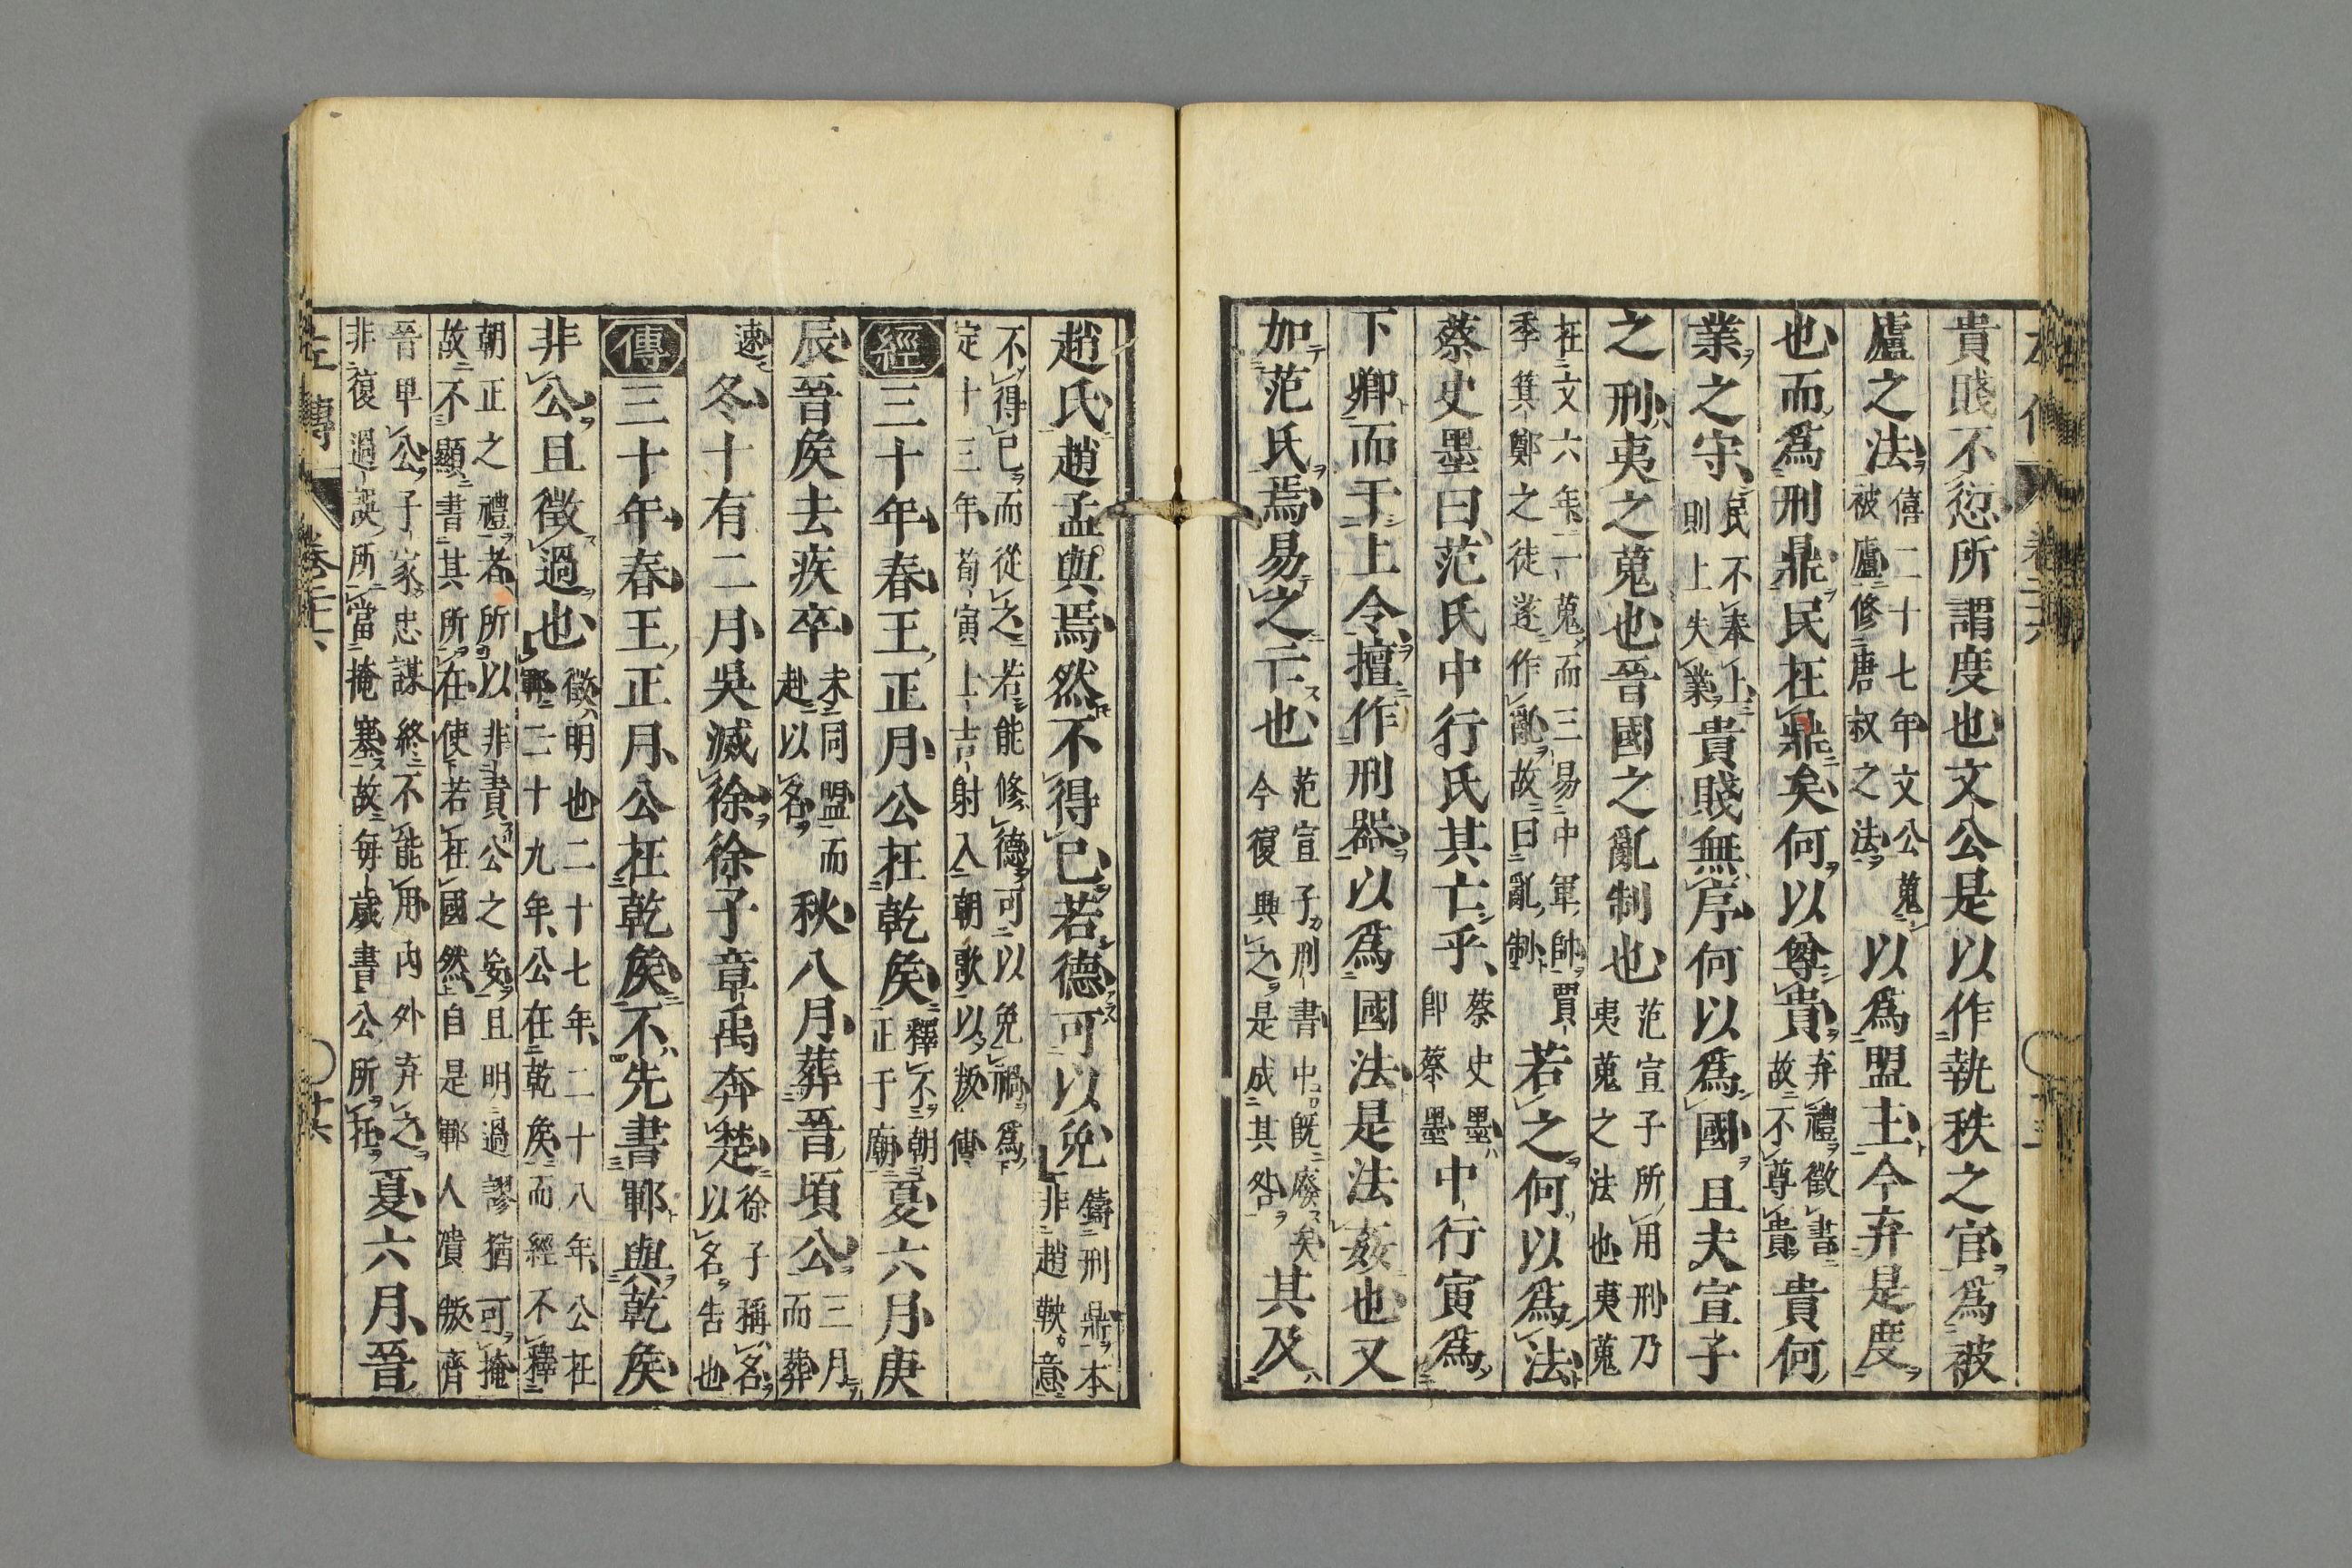 貴賤不愆所謂度也文公是以作執秩之官爲被
廬之法僖二十七年文公蒐被廬修唐叔之法以爲盟主今弃是度
也而爲刑鼎民在鼎矣何以尊貴弃禮徵書故不尊貴貴何
業之守民不奉上則上失業貴賤無序何以爲國且夫宣子
之刑夷之蒐也晉國之亂制也范宣子所用刑乃夷蒐之法也夷蒐
在文六年一蒐而三易中軍帥賈季箕鄭之徒遂作亂故曰亂制若之何以爲法
蔡史墨曰范氏中行氏其亡乎蔡史墨即蔡墨中行寅爲
下卿而干上令擅作刑器以爲國法是法姦也又
加范氏焉易之亡也范宣子刑書中既廢矣今復興之是成其咎其及
趙氏趙孟與焉然不得已若德可以免鑄刑鼎本非趙鞅意
不得已而從之若能修德可以免禍爲定十三年荀寅士吉射入朝歌以叛傳
經三十年春王正月公在乾侯釋不朝正于廟夏六月庚
辰晉侯去疾卒未同盟而赴以名秋八月葬晉頃公三月而葬
速冬十有二月吳滅徐徐子章禹奔楚徐子稱名以名告也
傳三十年春王正月公在乾侯不先書鄆與乾侯
非公且徵過也徵明也二十七年二十八年公在鄆二十九年公在乾侯而經不釋
朝正之禮者所以非責公之妄且明過謬猶可掩故不顯書其所在使若在國然自是鄆人潰叛齊
晉卑公子家忠謀終不能用內外弃之非復過誤所當掩塞故每歲書公所在夏六月晉
左傳 卷二十六